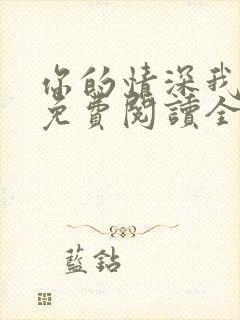 你的情深我
免費閱讀全
藍鈷